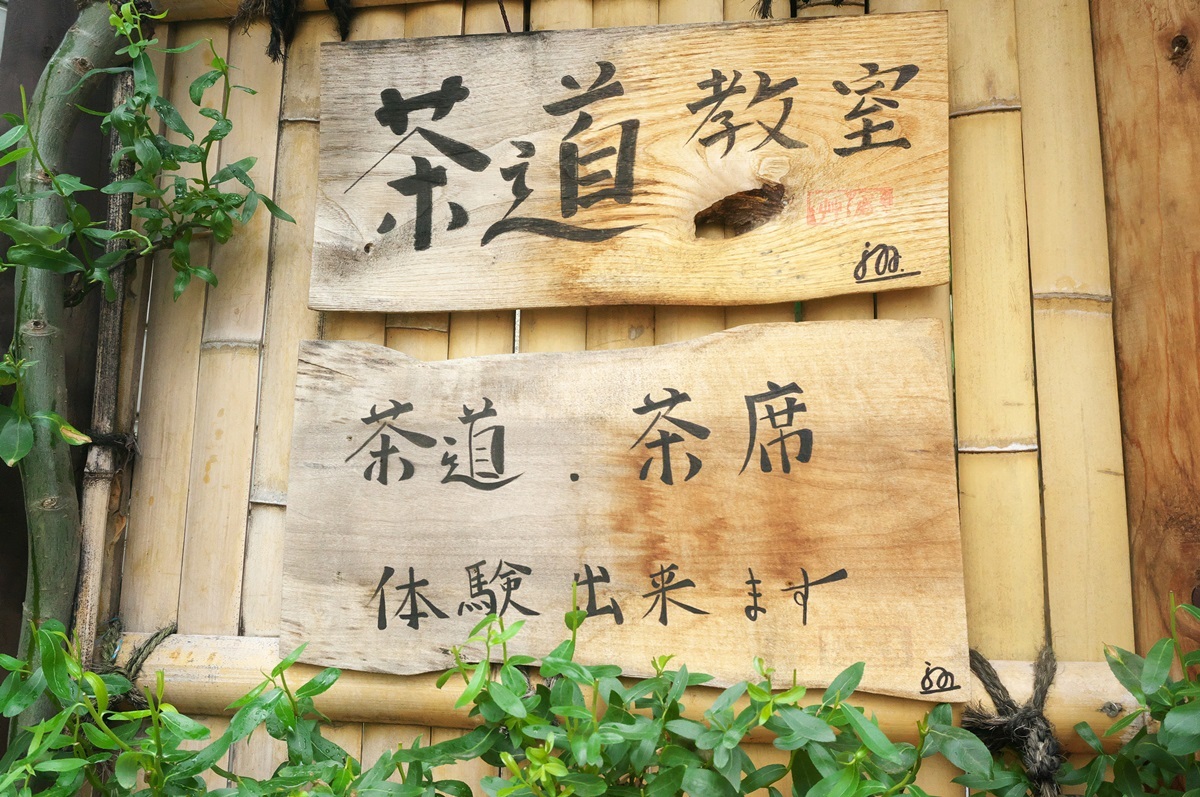 茶道教室
茶道.茶席
体験出来ます